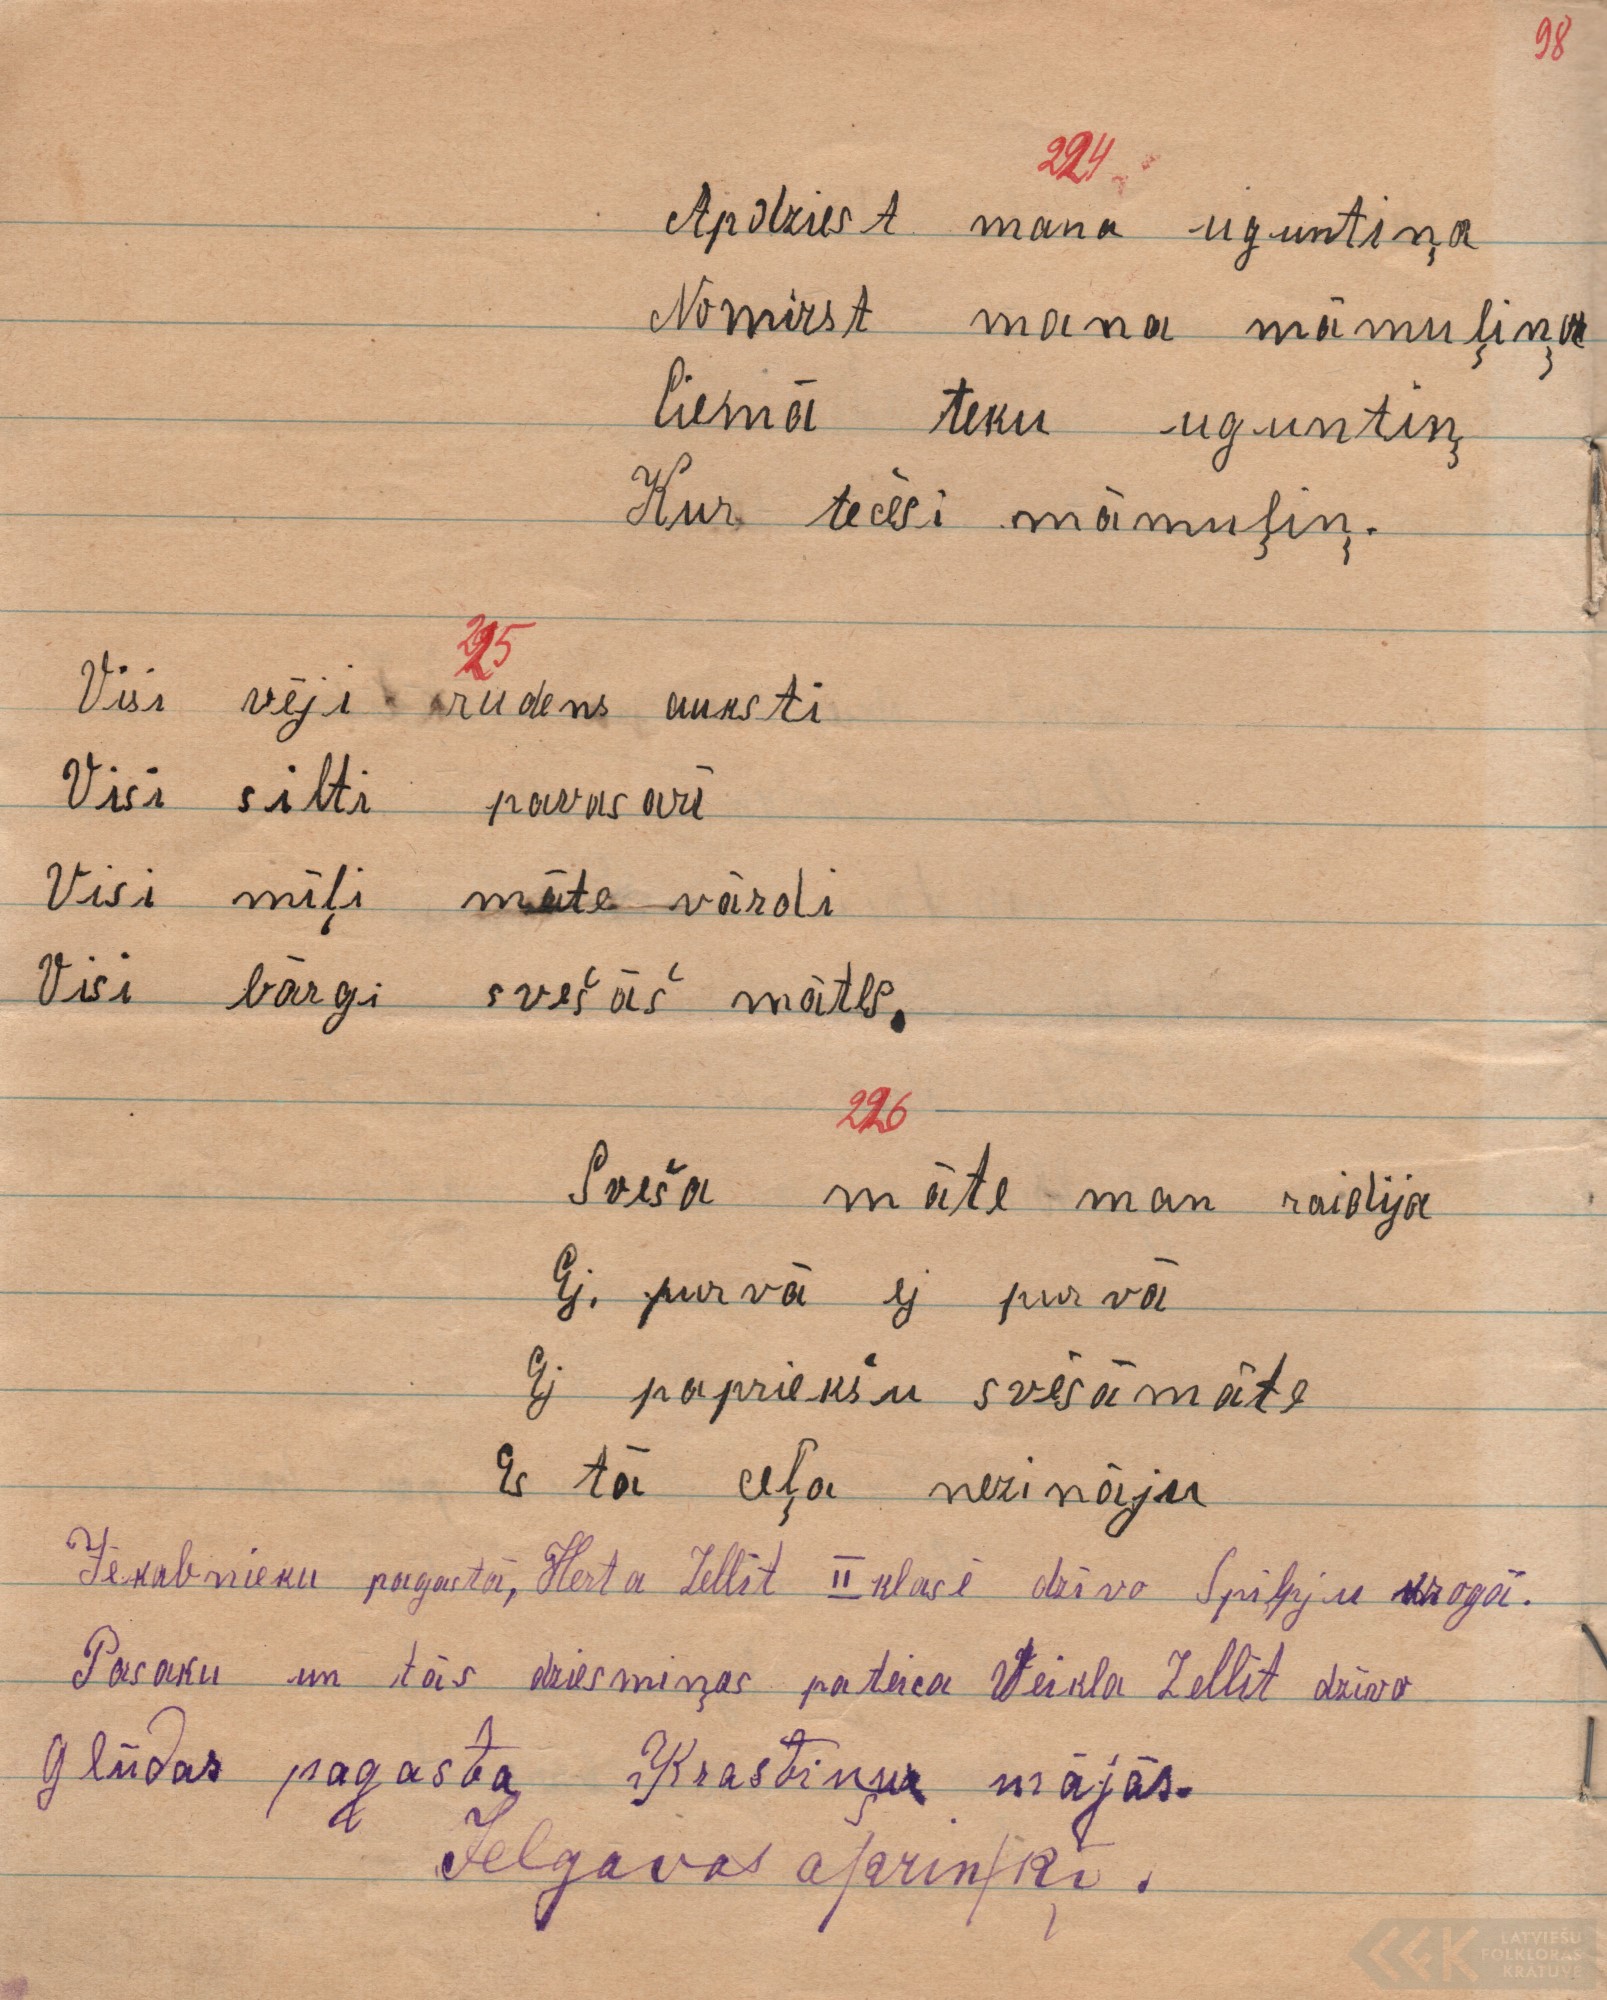 98
224
Apdziest mana uguntiņa
Nomirst mana māmuļiņa
Ciemā teku uguntiņ
Kur tecēsi māmuļiņ.
225
Visi vēji rudens auksti
Visi silti pavasarī
Visi mīļi māte vārdi
Visi bārgi svešāš mātes.
226
Sveša māte man raidija
Ej. purvā ej purvā
Ej papriekšu svēšāmāte
Es tā ceļa nezināju
Jēkabnieku pagastā, Herta Zellīt II klasē dzīvo krogā.
Pasaku un tās dziesmiņas pateica Veikla Zellīt dzīvo
Glūdas pagasta Krastiņu mājās.
Jelgavas apriņķī.
LATVIEŠU
FOLKLORAS
KRĀTUVE